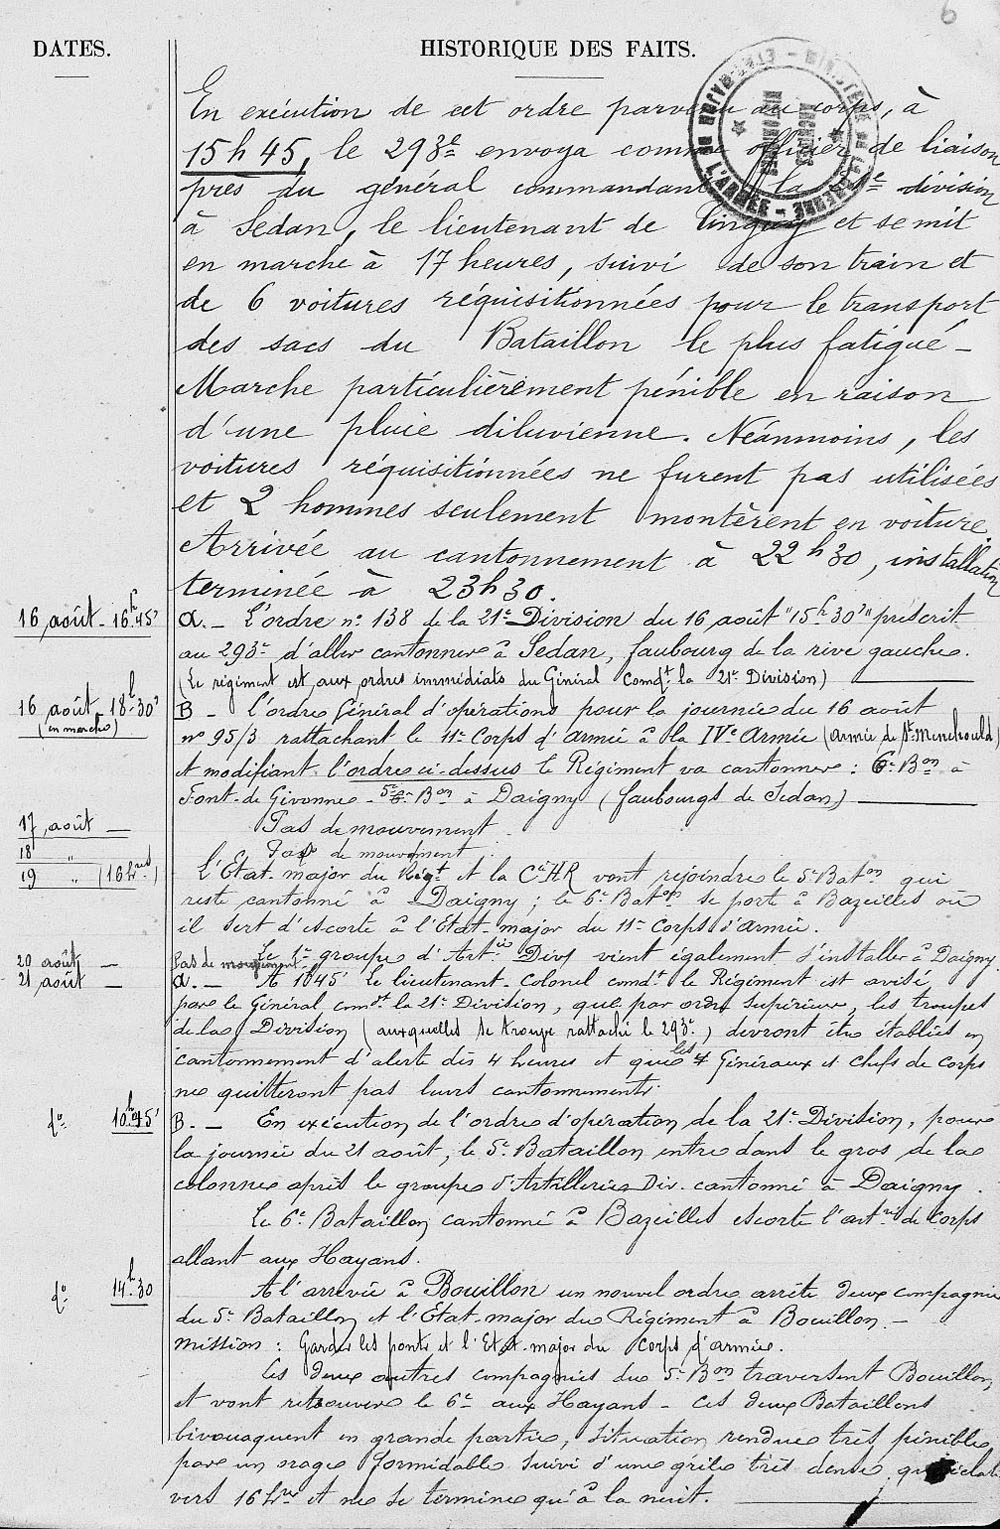 6
DATES.
HISTORIQUE DES FAITS.
En exécution de cet ordre parvenu au corps, à
15h45, le 293e envoya comme officier de liaison
près du général commandant la 21e division
à Sedan, le lieutenant de et se mit
en marche à 17 heures, suivi de son train et
de 6 voitures réquisitionnées pour le transport
des sacs du Bataillon le plus fatigué -
Marche particulièrement pénible en raison
d'une pluie diluvienne. Néanmoins, les
voitures réquisitionnées ne furent pas utilisées
et 2 hommes seulement montèrent en voiture.
Arrivée au cantonnement à 22h30, installation
terminée à 23h30.
16 août - 16h45' a. - L'ordre n° 138 de la 21e Division du 16 août "15h30'" prescrit
au 293e d'aller cantonner à Sedan, faubourg de la rive gauche.
(Le régiment est aux ordres immédiats du Général Comdt la 21e Division)
16 août - 18h30' B - L'ordre Général d'opérations pour la journée du 16 août
(en marche) n° 95/3 rattachant le 11e Corps d'Armée à la IVe Armée (armée de Ste Menehould)
et modifiant l'ordre ci-dessus le Régiment va cantonner : 6e Bon à
Font-de Givonne - 5e Bon à Daigny (faubourgs de Sedan)
17 août - Pas de mouvement.
18 " Pas de mouvement.
19 " (16 hres) L'Etat-major du Régt et la Cie HR vont rejoindre le 5e Baton qui
reste cantonné à Daigny ; le 6e Baton se porte à Bazeilles où
il sert d'escorte à l'Etat-major du 11e Corps d'Armée.
Le 1er groupe d'Artie Dive vient également s'installer à Daigny.
20 août - Pas de mouvement
21 août - a. - A 1h45' Le lieutenant-Colonel comdt le Régiment est avisé
par le Général comdt la 21e Division, que par ordre supérieur, les troupes
de la Division (auxquelles se trouve rattaché le 293e) devront être établies en
cantonnement d'alerte dès 4 heures et que les Généraux et chefs de corps
ne quitteront pas leurs cantonnements.
do 10h45' B. - En exécution de l'ordre d'opération de la 21e Division, pour
la journée du 21 août, le 5e Bataillon entre dans le gros de la
colonne après le groupe d'Artillerie Div. cantonné à Daigny.
Le 6e Bataillon cantonné à Bazeilles escorte l'artrie de Corps
allant aux Hayons.
do 14h30 A l'arrivée à Bouillon un nouvel ordre arrête deux compagnies
du 5e Bataillon et l'Etat-major du Régiment à Bouillon. -
Mission : Garder les ponts et l'Etat-major du Corps d'armée.
Les deux autres compagnies du 5e Bon traversent Bouillon
et vont retrouver le 6e aux Hayons - Ces deux Bataillons
bivouaquent en grande partie, situation rendue très pénible
par un orage formidable suivi d'une grêle très dense, qui éclate
vers 16 hres et ne se termine qu'à la nuit.